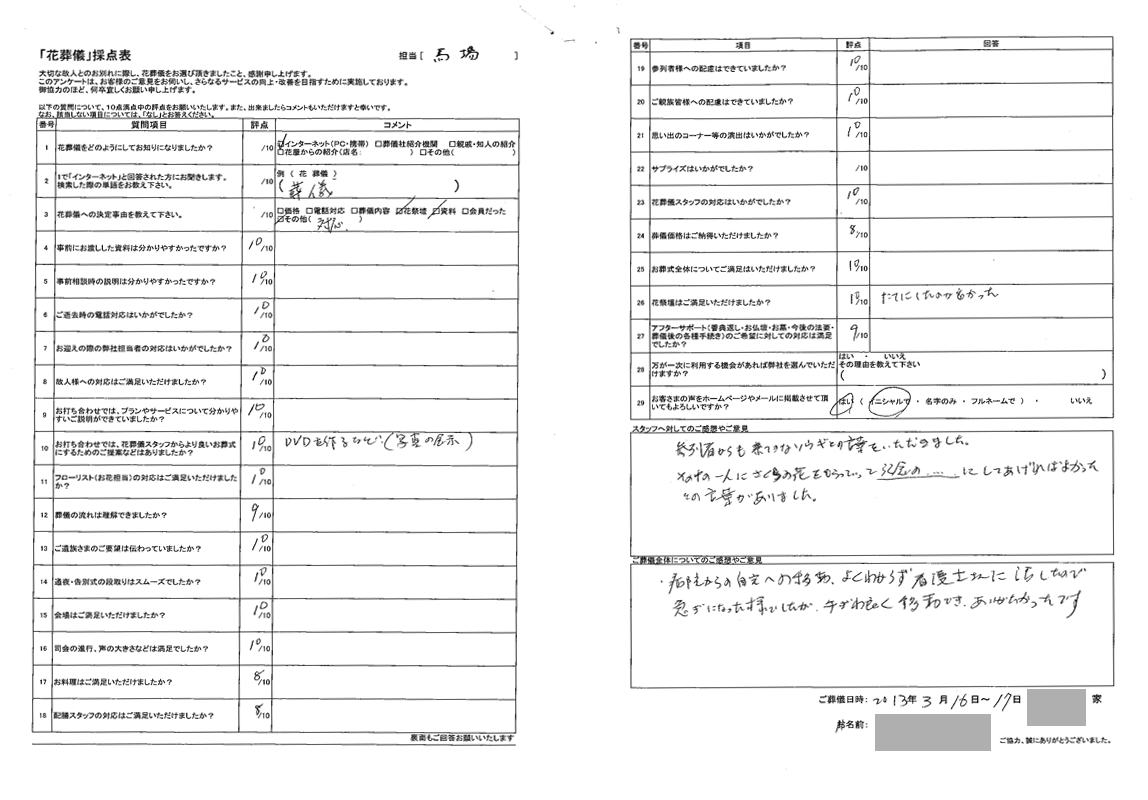 「花葬儀」採点表
担当 [ 馬場 ]
大切な故人とのお別れに際し、花葬儀をお選び頂きましたこと、感謝申し上げます。
このアンケートは、お客様のご意見をお伺いし、さらなるサービスの向上・改善を目指すために実施しております。
御協力のほど、何卒宜しくお願い申し上げます。
以下の質問について、10点満点中の評点をお願いいたします。また、出来ましたらコメントもいただけますと幸いです。
なお、該当しない項目については、「なし」とお答えください。
番号 質問項目 評点 コメント
1 花葬儀をどのようにしてお知りになりましたか? /10 ☑インターネット(PC・携帯) □葬儀社紹介機関 □親戚・知人の紹介
□花屋からの紹介(店名: ) □その他( )
2 1で「インターネット」と回答された方にお聞きします。
検索した際の単語をお教え下さい。 /10 例 ( 花 葬儀 )
( 葬儀 )
3 花葬儀への決定事由を教えて下さい。 /10 □価格 □電話対応 □葬儀内容 ☑花祭壇 ☑資料 □会員だった
☑その他( 対応. )
4 事前にお渡しした資料は分かりやすかったですか? 10/10
5 事前相談時の説明は分かりやすかったですか? 10/10
6 ご逝去時の電話対応はいかがでしたか? 10/10
7 お迎えの際の弊社担当者の対応はいかがでしたか? 10/10
8 故人様への対応はご満足いただけましたか? 10/10
9 お打ち合わせでは、プランやサービスについて分かりや
すいご説明ができていましたか? 10/10
10 お打ち合わせでは、花葬儀スタッフからより良いお葬式
にするためのご提案などはありましたか? 10/10 DVDを作るなど.(写真の展示)
11 フローリスト(お花担当)の対応はご満足いただけました
か? 10/10
12 葬儀の流れは理解できましたか? 9/10
13 ご遺族さまのご要望は伝わっていましたか? 10/10
14 通夜・告別式の段取りはスムーズでしたか? 10/10
15 会場はご満足いただけましたか? 10/10
16 司会の進行、声の大きさなどは満足でしたか? 10/10
17 お料理はご満足いただけましたか? 8/10
18 配膳スタッフの対応はご満足いただけましたか? 8/10
裏面もご回答お願いいたします
番号 項目 評点 回答
19 参列者様への配慮はできていましたか? 10/10
20 ご親族皆様への配慮はできていましたか? 10/10
21 思い出のコーナー等の演出はいかがでしたか? 10/10
22 サプライズはいかがでしたか? /10
23 花葬儀スタッフの対応はいかがでしたか? 10/10
24 葬儀価格はご納得いただけましたか? 8/10
25 お葬式全体についてご満足はいただけましたか? 10/10
26 花祭壇はご満足いただけましたか? 10/10 たてにしたのが良かった
27 アフターサポート(香典返し・お仏壇・お墓・今後の法要・
葬儀後の各種手続き)のご希望に対しての対応は満足
でしたか? 9/10
28 万が一次に利用する機会があれば弊社を選んでいただ
けますか? はい ・ いいえ
その理由を教えて下さい
( )
29 お客さまの声をホームページやメールに掲載させて頂
いてもよろしいですか? はい ( イニシャルで ・ 名字のみ ・ フルネームで ) ・ いいえ
スタッフへ対してのご感想やご意見
参列者からも すてきなソウギとの言葉をいただきました。
その中の一人に 花をもらっていって 記念の .... にしてあげればよかった
との言葉がありました。
ご葬儀全体についてのご感想やご意見
・病院からの自宅への移動、よくわからず看護士さんに話したので
急ぎになった様でしたが、手ぎわ良く移動でき、ありがたかったです
ご葬儀日時: 2013年 3 月 16日〜17日 家
お名前:
ご協力、誠にありがとうございました。